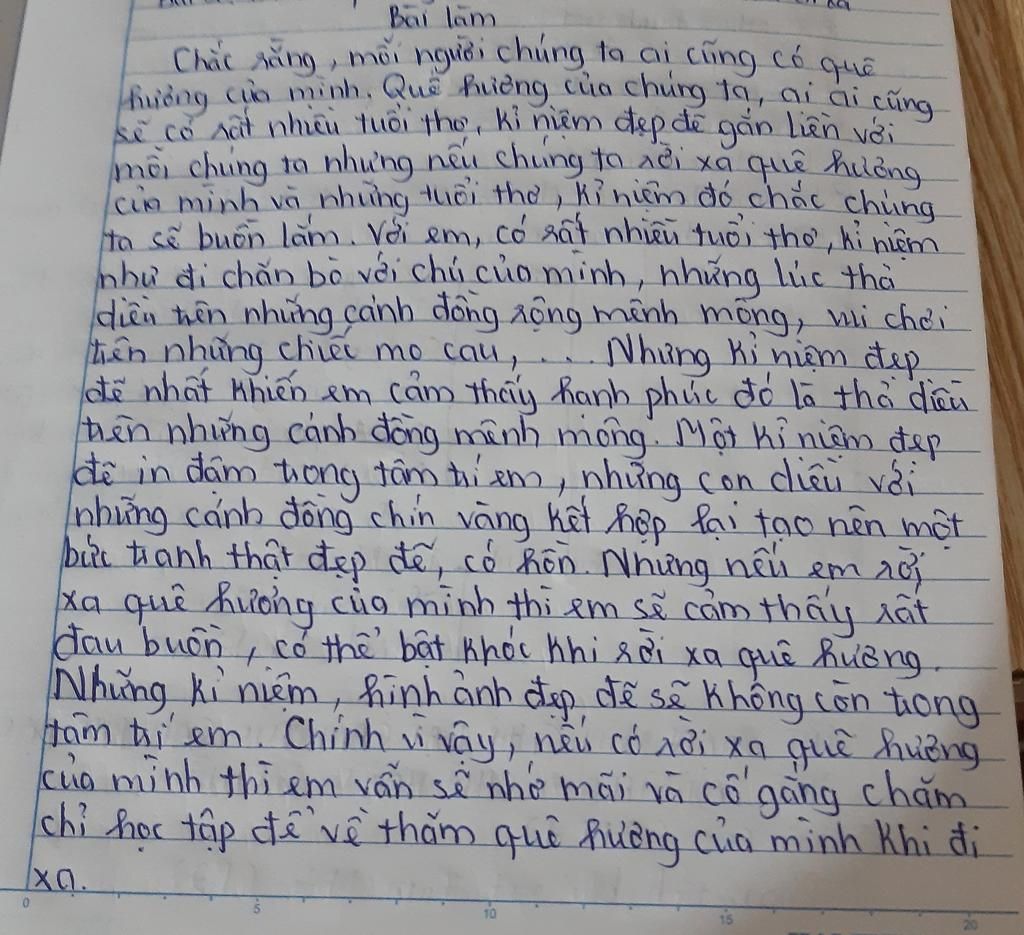 Bài làm
Chắc rằng, mỗi người chúng ta ai cũng có quê
hương của mình. Quê hương của chúng ta, ai ai cũng
sẽ có rất nhiều tuổi thơ, kỉ niệm đẹp đẽ gắn liền với
mỗi chúng ta nhưng nếu chúng ta rời xa quê hương
của mình và những tuổi thơ, kỉ niệm đó chắc chúng
ta sẽ buồn lắm. Với em, có rất nhiều tuổi thơ, kỉ niệm
như đi chăn bò với chú của mình, những lúc thả
diều trên những cánh đồng rộng mênh mông, vui chơi
trên những chiếc mo cau, ... Nhưng kỉ niệm đẹp
đẽ nhất khiến em cảm thấy hạnh phúc đó là thả diều
trên những cánh đồng mênh mông. Một kỉ niệm đẹp
đẽ in đậm trong tâm trí em, những con diều với
những cánh đồng chín vàng kết hợp lại tạo nên một
bức tranh thật đẹp đẽ, có hồn. Nhưng nếu em rời
xa quê hương của mình thì em sẽ cảm thấy rất
đau buồn, có thể bật khóc khi rời xa quê hương.
Những kỉ niệm, hình ảnh đẹp đẽ sẽ không còn trong
tâm trí em. Chính vì vậy, nếu có rời xa quê hương
của mình thì em vẫn sẽ nhớ mãi và cố gắng chăm
chỉ học tập để về thăm quê hương của mình khi đi
xa.
0 5 10 15 20